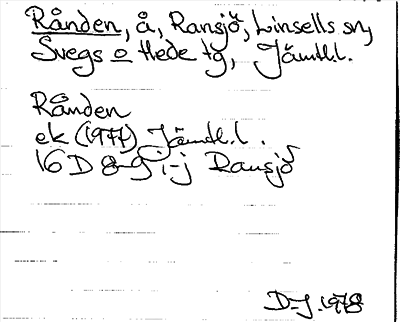 Rånden, å, Ransjö, Linsells sn,
Svegs o Hede tg, Jämtl.l.
Rånden
ek (1977) Jämtl.l.
16 D 8-9 i-j Ransjö
D-J. 1978